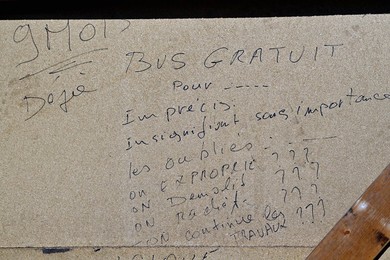 9 MOIS
Déjà
BUS GRATUIT
Pour -----
Imprécis.
Insignifiant sans importance
les oubliés : - ----
on EXPROPRIE ???
ON Demolit ???
ON Rachat. ???
on continue les ???
TRAVAUX